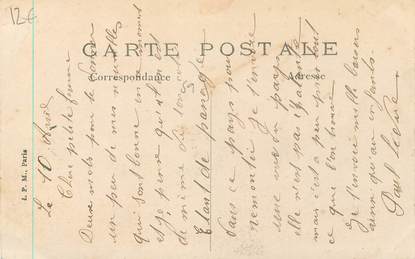 12€
CARTE POSTALE
Correspondance
Adresse
I. P. M., Paris
Le 10
Cher petite femme
Deux mots pour te donner
un peu de mes nouvelles
qui sont bonne en ce moment
et je pense qu'il en est
de même de
Etant de passage
dans ce pays pour
remonter je t'envoie
une vue du pays
elle n'est pas
mais c'est a peu près tout
ce que l'on trouve
Je t'envoie mille baisers
ainsi qu'au enfants
Paul